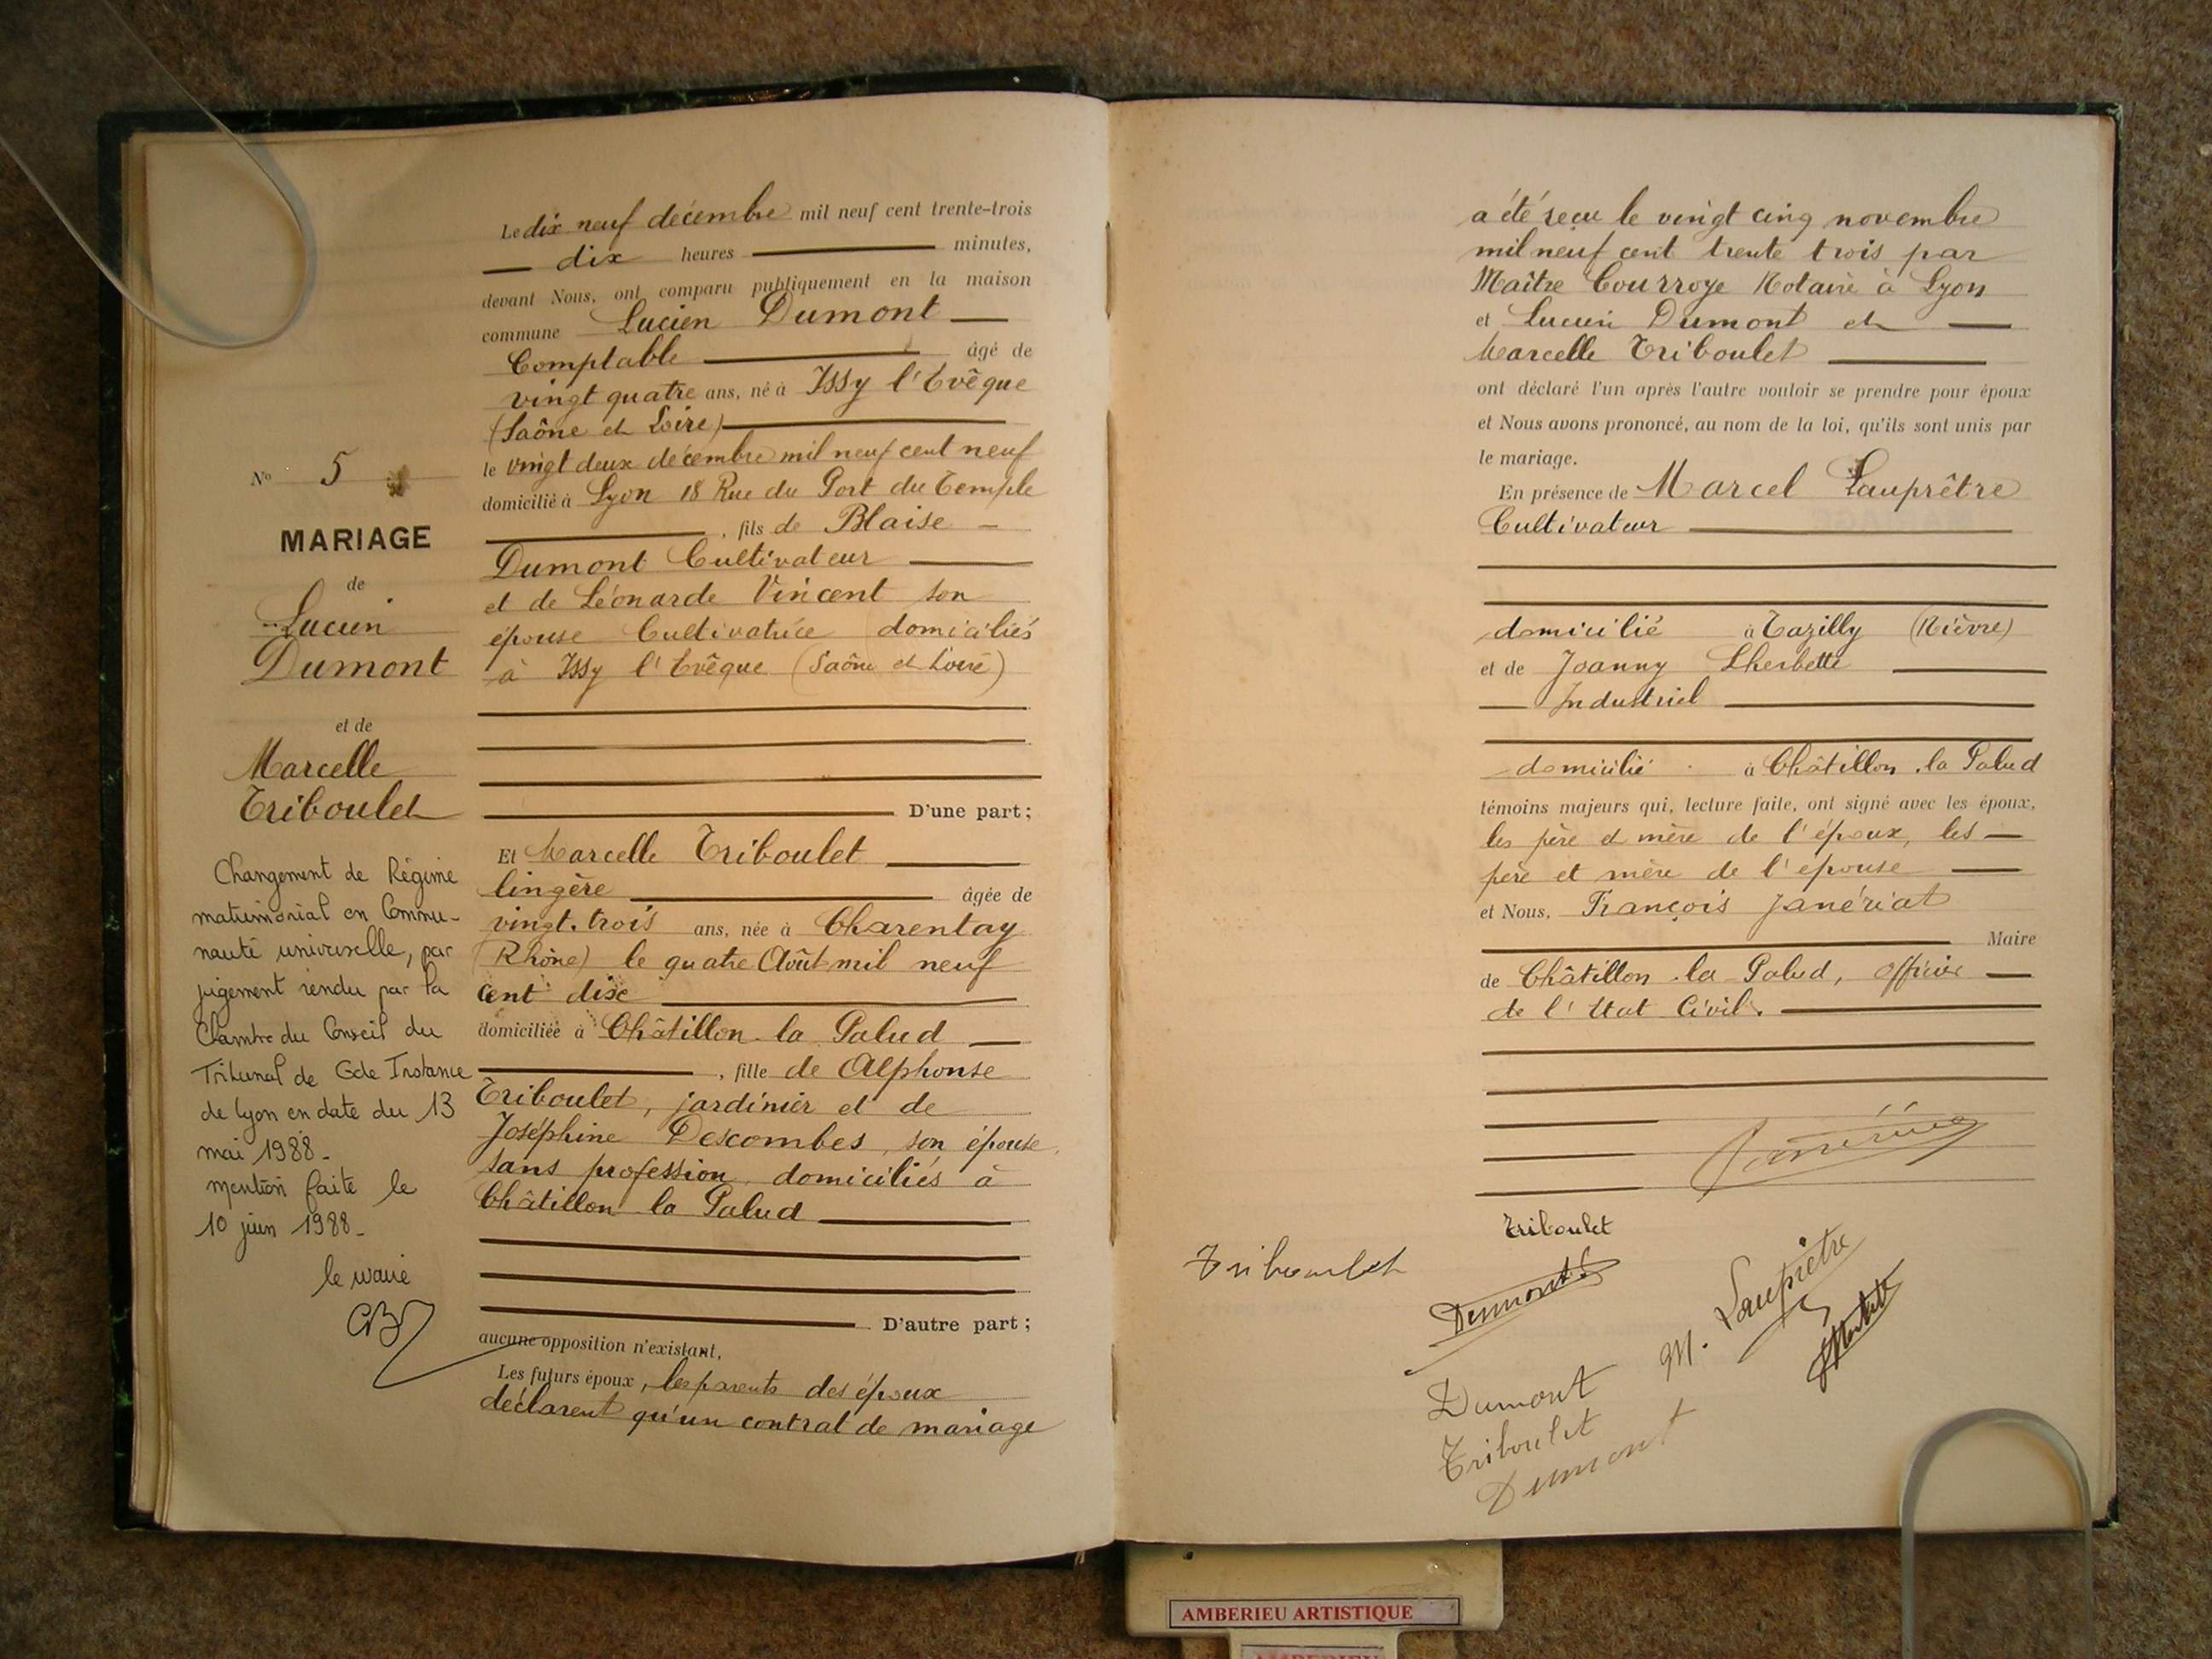 Le dix neuf décembre mil neuf cent trente-trois
dix heures minutes,
devant Nous, ont comparu publiquement en la maison
commune Lucien Dumont
Comptable âgé de
vingt quatre ans, né à Issy l'Evêque
(Saône et Loire)
le vingt deux décembre mil neuf cent neuf
domicilié à Lyon 18 Rue du Port du Temple
, fils de Blaise
Dumont Cultivateur
et de Léonarde Vincent son
épouse Cultivatrice domiciliés
à Issy l'Evêque (Saône et Loire)
D'une part;
Et Marcelle Triboulet
lingère âgée de
vingt-trois ans, née à Charentay
(Rhône) le quatre Août mil neuf
cent dix
domiciliée à Châtillon la Palud
, fille de Alphonse
Triboulet, jardinier et de
Joséphine Descombes, son épouse,
sans profession, domiciliés à
Châtillon la Palud
D'autre part;
aucune opposition n'existant,
Les futurs époux, les parents des époux
déclarent qu'un contrat de mariage
No 5
MARIAGE
de
Lucien
Dumont
et de
Marcelle
Triboulet
Changement de Régime
matrimonial en Commu-
nauté universelle, par
jugement rendu par la
Chambre du Conseil du
Tribunal de Gde Instance
de Lyon en date du 13
mai 1988-
mention faite le
10 juin 1988-
le maire
a été reçu le vingt cinq novembre
mil neuf cent trente trois par
Maître Courroye Notaire à Lyon
et Lucien Dumont et
Marcelle Triboulet
ont déclaré l'un après l'autre vouloir se prendre pour époux
et Nous avons prononcé, au nom de la loi, qu'ils sont unis par
le mariage.
En présence de Marcel Lauprêtre
Cultivateur
domicilié à Tazilly (Nièvre)
et de Joanny Lherbette
Industriel
domicilié à Châtillon la Palud
témoins majeurs qui, lecture faite, ont signé avec les époux,
les père et mère de l'époux, les
père et mère de l'épouse
et Nous, François Janériat
Maire
de Châtillon la Palud, officier
de l'Etat Civil.
Triboulet
Triboulet
Dumont
M. Lauprêtre
Dumont
Triboulet
Dumont
AMBERIEU ARTISTIQUE
AMBERIEU